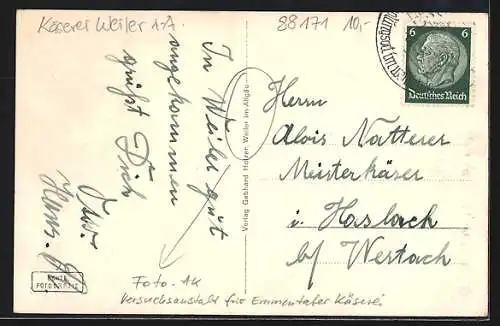 Käserei Weiler i. A.
88171 10,-
In Weiler gut
angekommen
grüßt Dich
Hans
Verlag Gebhard Holzer, Weiler im Allgäu
ECHTE
FOTOGRAFIE
6 6
Deutsches Reich
Herrn
Alois Natterer
Meisterkäser
i. Haslach
bf Wertach
Foto-AK
Versuchsanstalt für Emmentaler Käserei